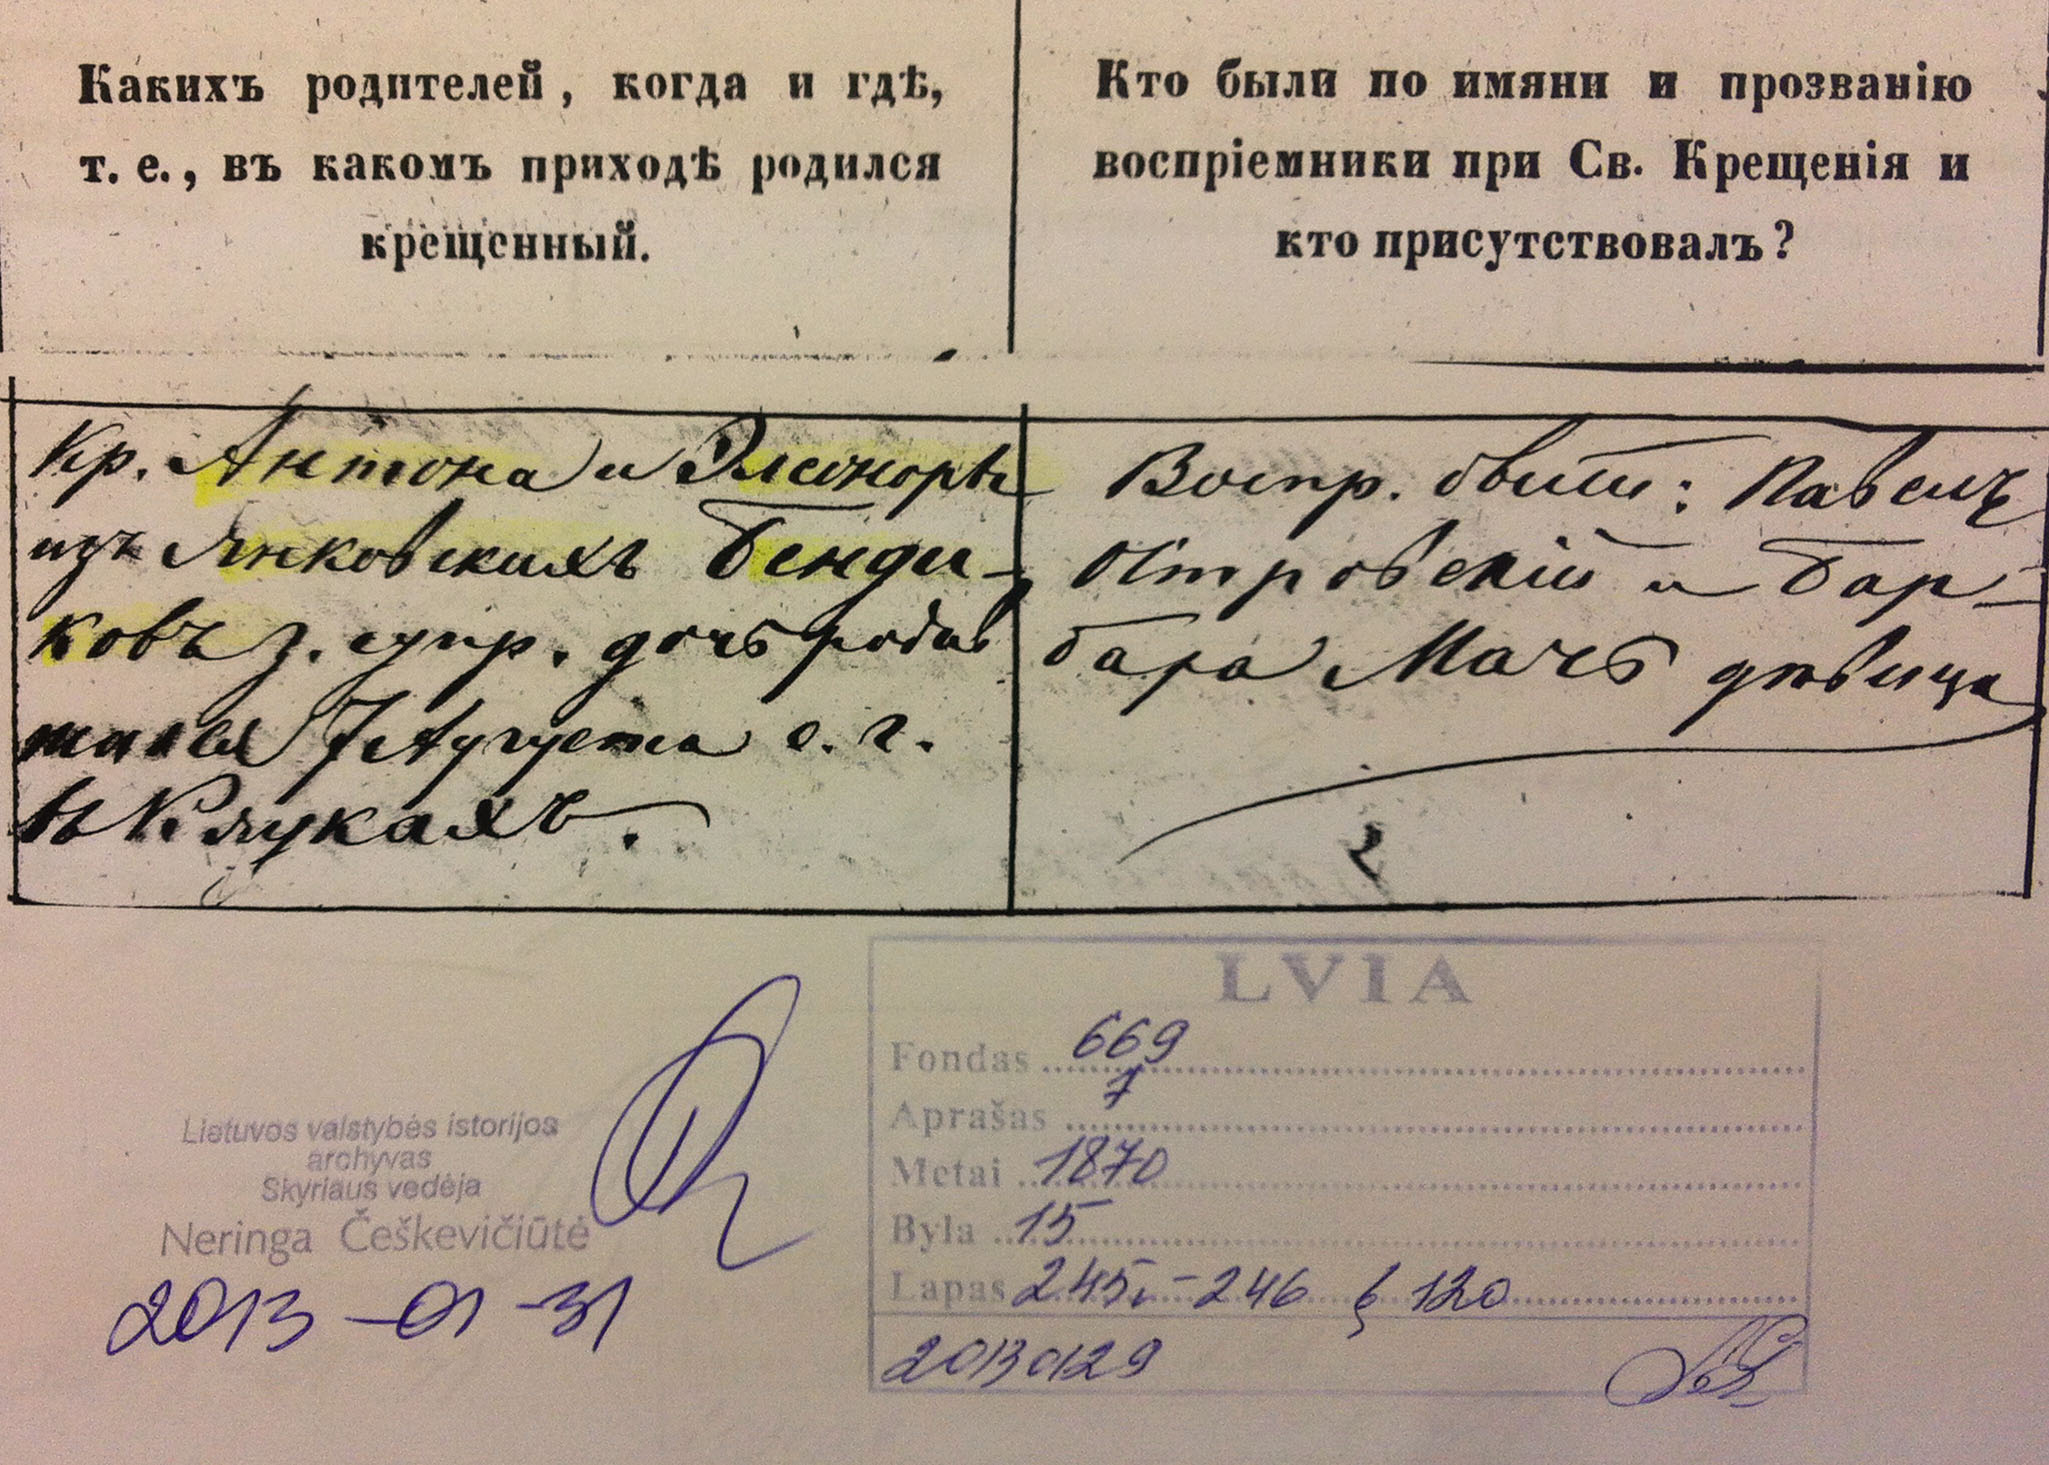 Какихъ родителей, когда и гдѣ,
т. е., въ какомъ приходѣ родился
крещенный.
Кто были по имяни и прозванію
воспріемники при Св. Крещенія и
кто присутствовалъ?
Кр. Антона и Элеоноры
изъ Янковскихъ Бенди-
ковъ з. супр. дочь родив
шаяся 7 Августа с. г.
въ Клукахъ.
Воспр. были: Павелъ
Островскій и Бар-
бара Мачъ дѣвица
LVIA
Fondas 669
Aprašas 7
Metai 1870
Byla 15
Lapas 245v-246 § 120
20130129
Lietuvos valstybės istorijos
archyvas
Skyriaus vedėja
Neringa Češkevičiūtė
2013-01-31